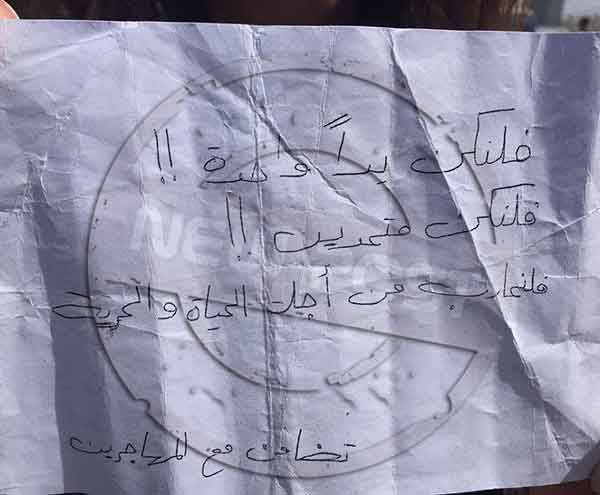 فلنكن يداً واحدة !!
فلنكن متحدين !!
فلنحارب من أجل الحياة والحرية
تضامن مع المهاجرين